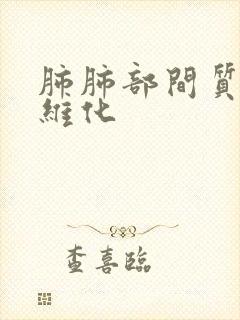 肺肺部間質
維化
查喜臨